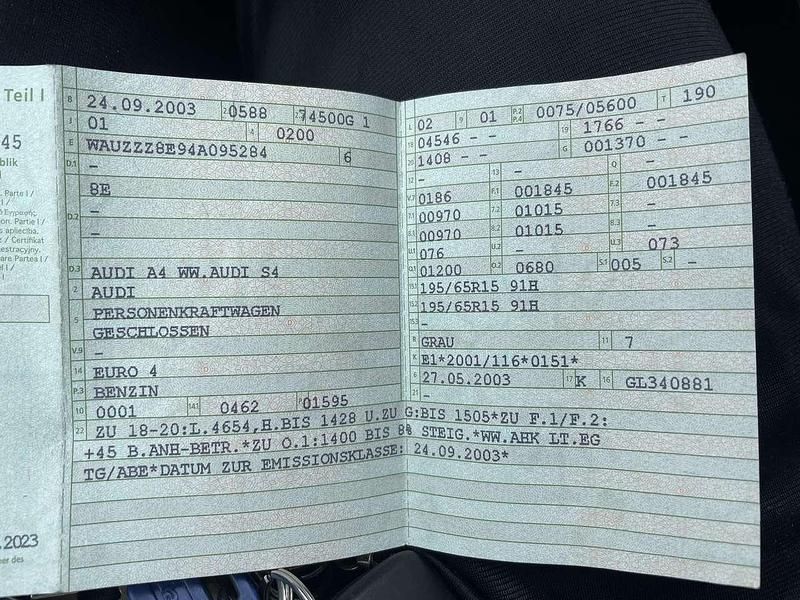 Teil I
45
blik
Parte I /
I /
Εγγραφής.
on. Partie I /
s apliecība.
z / Certifikat
estracyjny.
are Partea I /
el I /
I
.2023
er des
B 24.09.2003 2.1 0588 2.2 74500G 1
J 01 4 0200
E WAUZZZ8E94A095284 6
D.1 –
8E
D.2 –
–
D.3 AUDI A4 WW.AUDI S4
2 AUDI
5 PERSONENKRAFTWAGEN
GESCHLOSSEN
V.9 –
14 EURO 4
P.3 BENZIN
10 0001 14.1 0462 P.1 01595
L 02 9 01 P.2 P.4 0075/05600 T 190
18 04546 – – 19 1766 – –
20 1408 – – G 001370 – –
12 – 13 – Q –
V.7 0186 F.1 001845 F.2 001845
7.1 00970 7.2 01015 7.3 –
8.1 00970 8.2 01015 8.3 –
U.1 076 U.2 – U.3 073
O.1 01200 O.2 0680 S.1 005 S.2 –
15.1 195/65R15 91H
15.2 195/65R15 91H
15.3 –
R GRAU 11 7
K E1*2001/116*0151*
6 27.05.2003 17 K 16 GL340881
21 –
22 ZU 18-20:L.4654,H.BIS 1428 U.ZU G:BIS 1505*ZU F.1/F.2:
+45 B.ANH-BETR.*ZU O.1:1400 BIS 8% STEIG.*WW.AHK LT.EG
TG/ABE*DATUM ZUR EMISSIONSKLASSE: 24.09.2003*